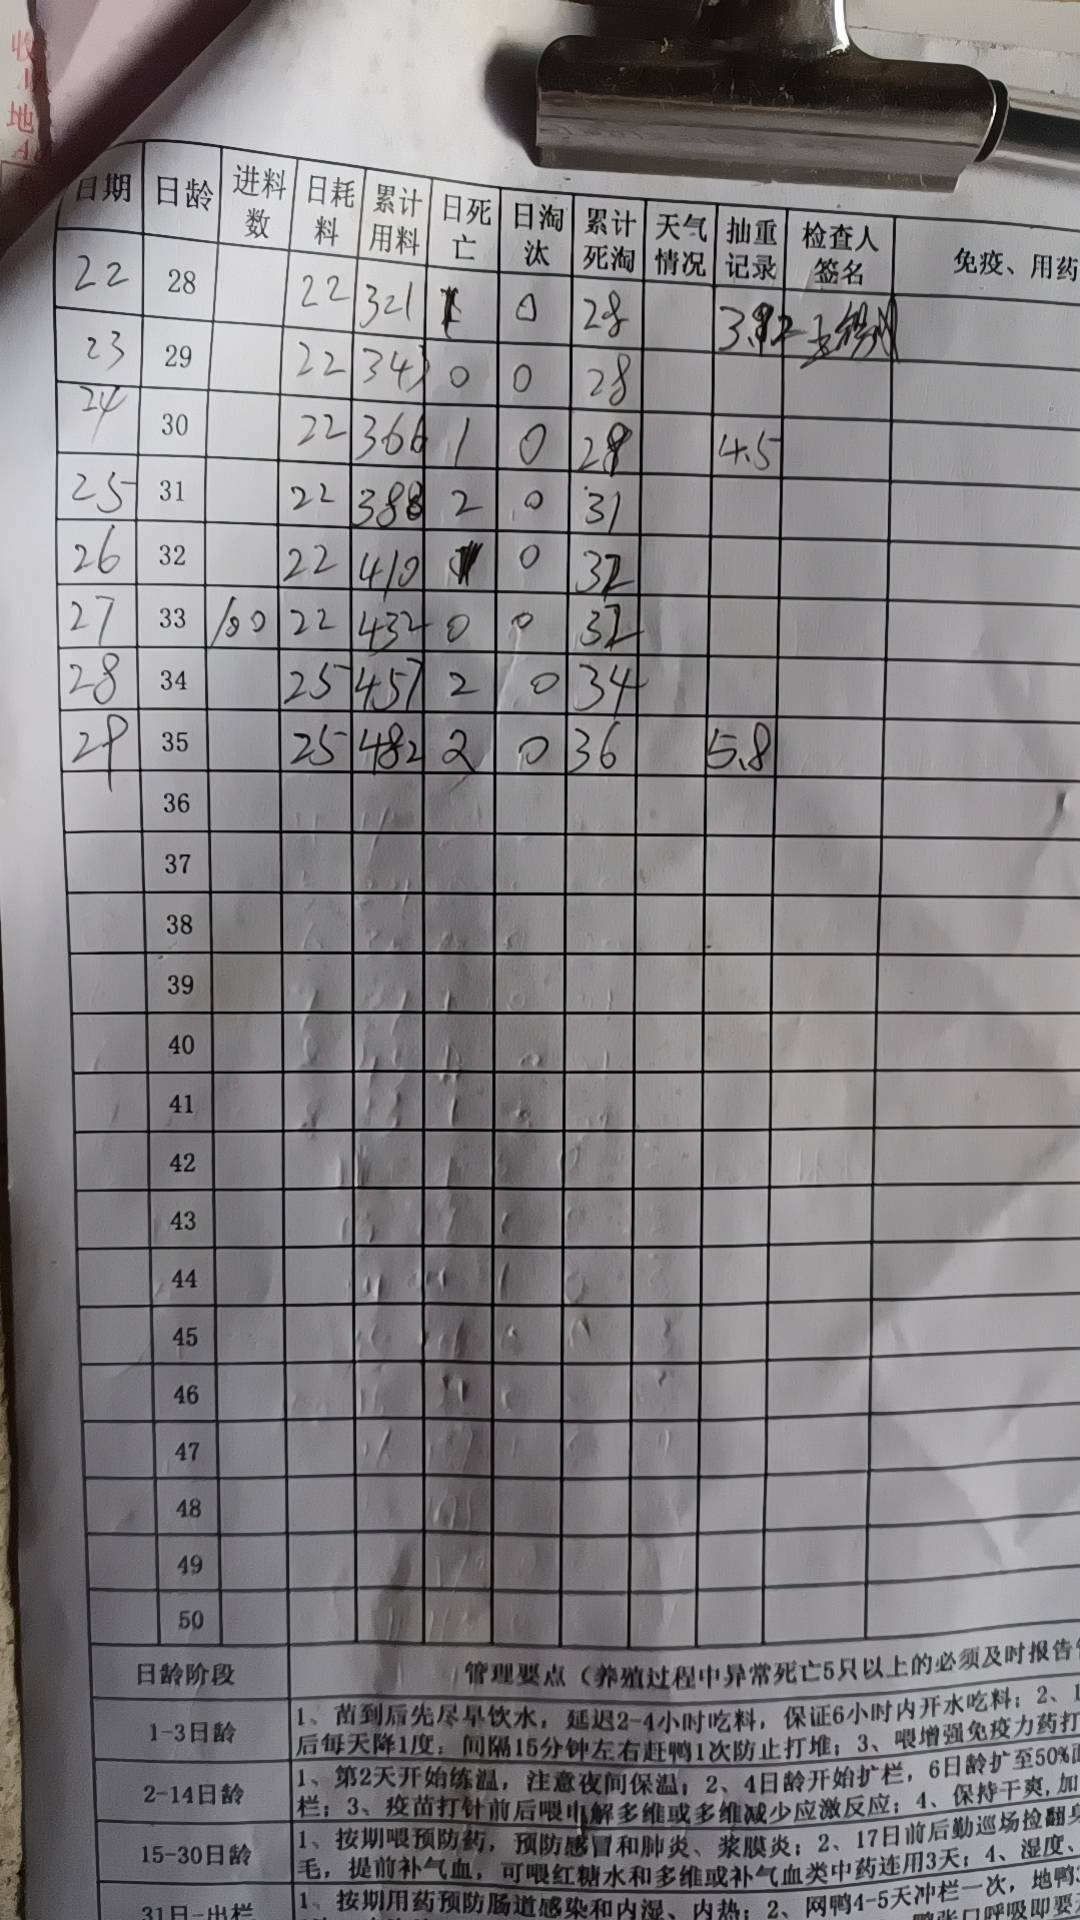 收
地
日期 日龄 进料数 日耗料 累计用料 日死亡 日淘汰 累计死淘 天气情况 抽重记录 检查人签名 免疫、用药
22 28 22 321 0 28
23 29 22 343 0 0 28
24 30 22 366 1 0 4.5
25 31 22 388 2 0 31
26 32 22 410 0 32
27 33 100 22 432 0 0 32
28 34 25 457 2 0 34
29 35 25 482 2 0 36 5.8
36
37
38
39
40
41
42
43
44
45
46
47
48
49
50
日龄阶段 管理要点（养殖过程中异常死亡5只以上的必须及时报告
1-3日龄 1、苗到后先尽早饮水，延迟2-4小时吃料，保证6小时内开水吃料；2、1
后每天降1度；间隔15分钟左右赶鸭1次防止打堆；3、喂增强免疫力药打
2-14日龄 1、第2天开始练温，注意夜间保温；2、4日龄开始扩栏，6日龄扩至50%面
栏；3、疫苗打针前后喂电解多维或多维减少应激反应；4、保持干爽,加
15-30日龄 1、按期喂预防药，预防感冒和肺炎、浆膜炎；2、17日前后勤巡场捡翻身
毛，提前补气血，可喂红糖水和多维或补气血类中药连用3天；4、湿度、
31日-出栏 1、按期用药预防肠道感染和内湿、内热；2、网鸭4-5天冲栏一次，地鸭
鸭张口呼吸即要